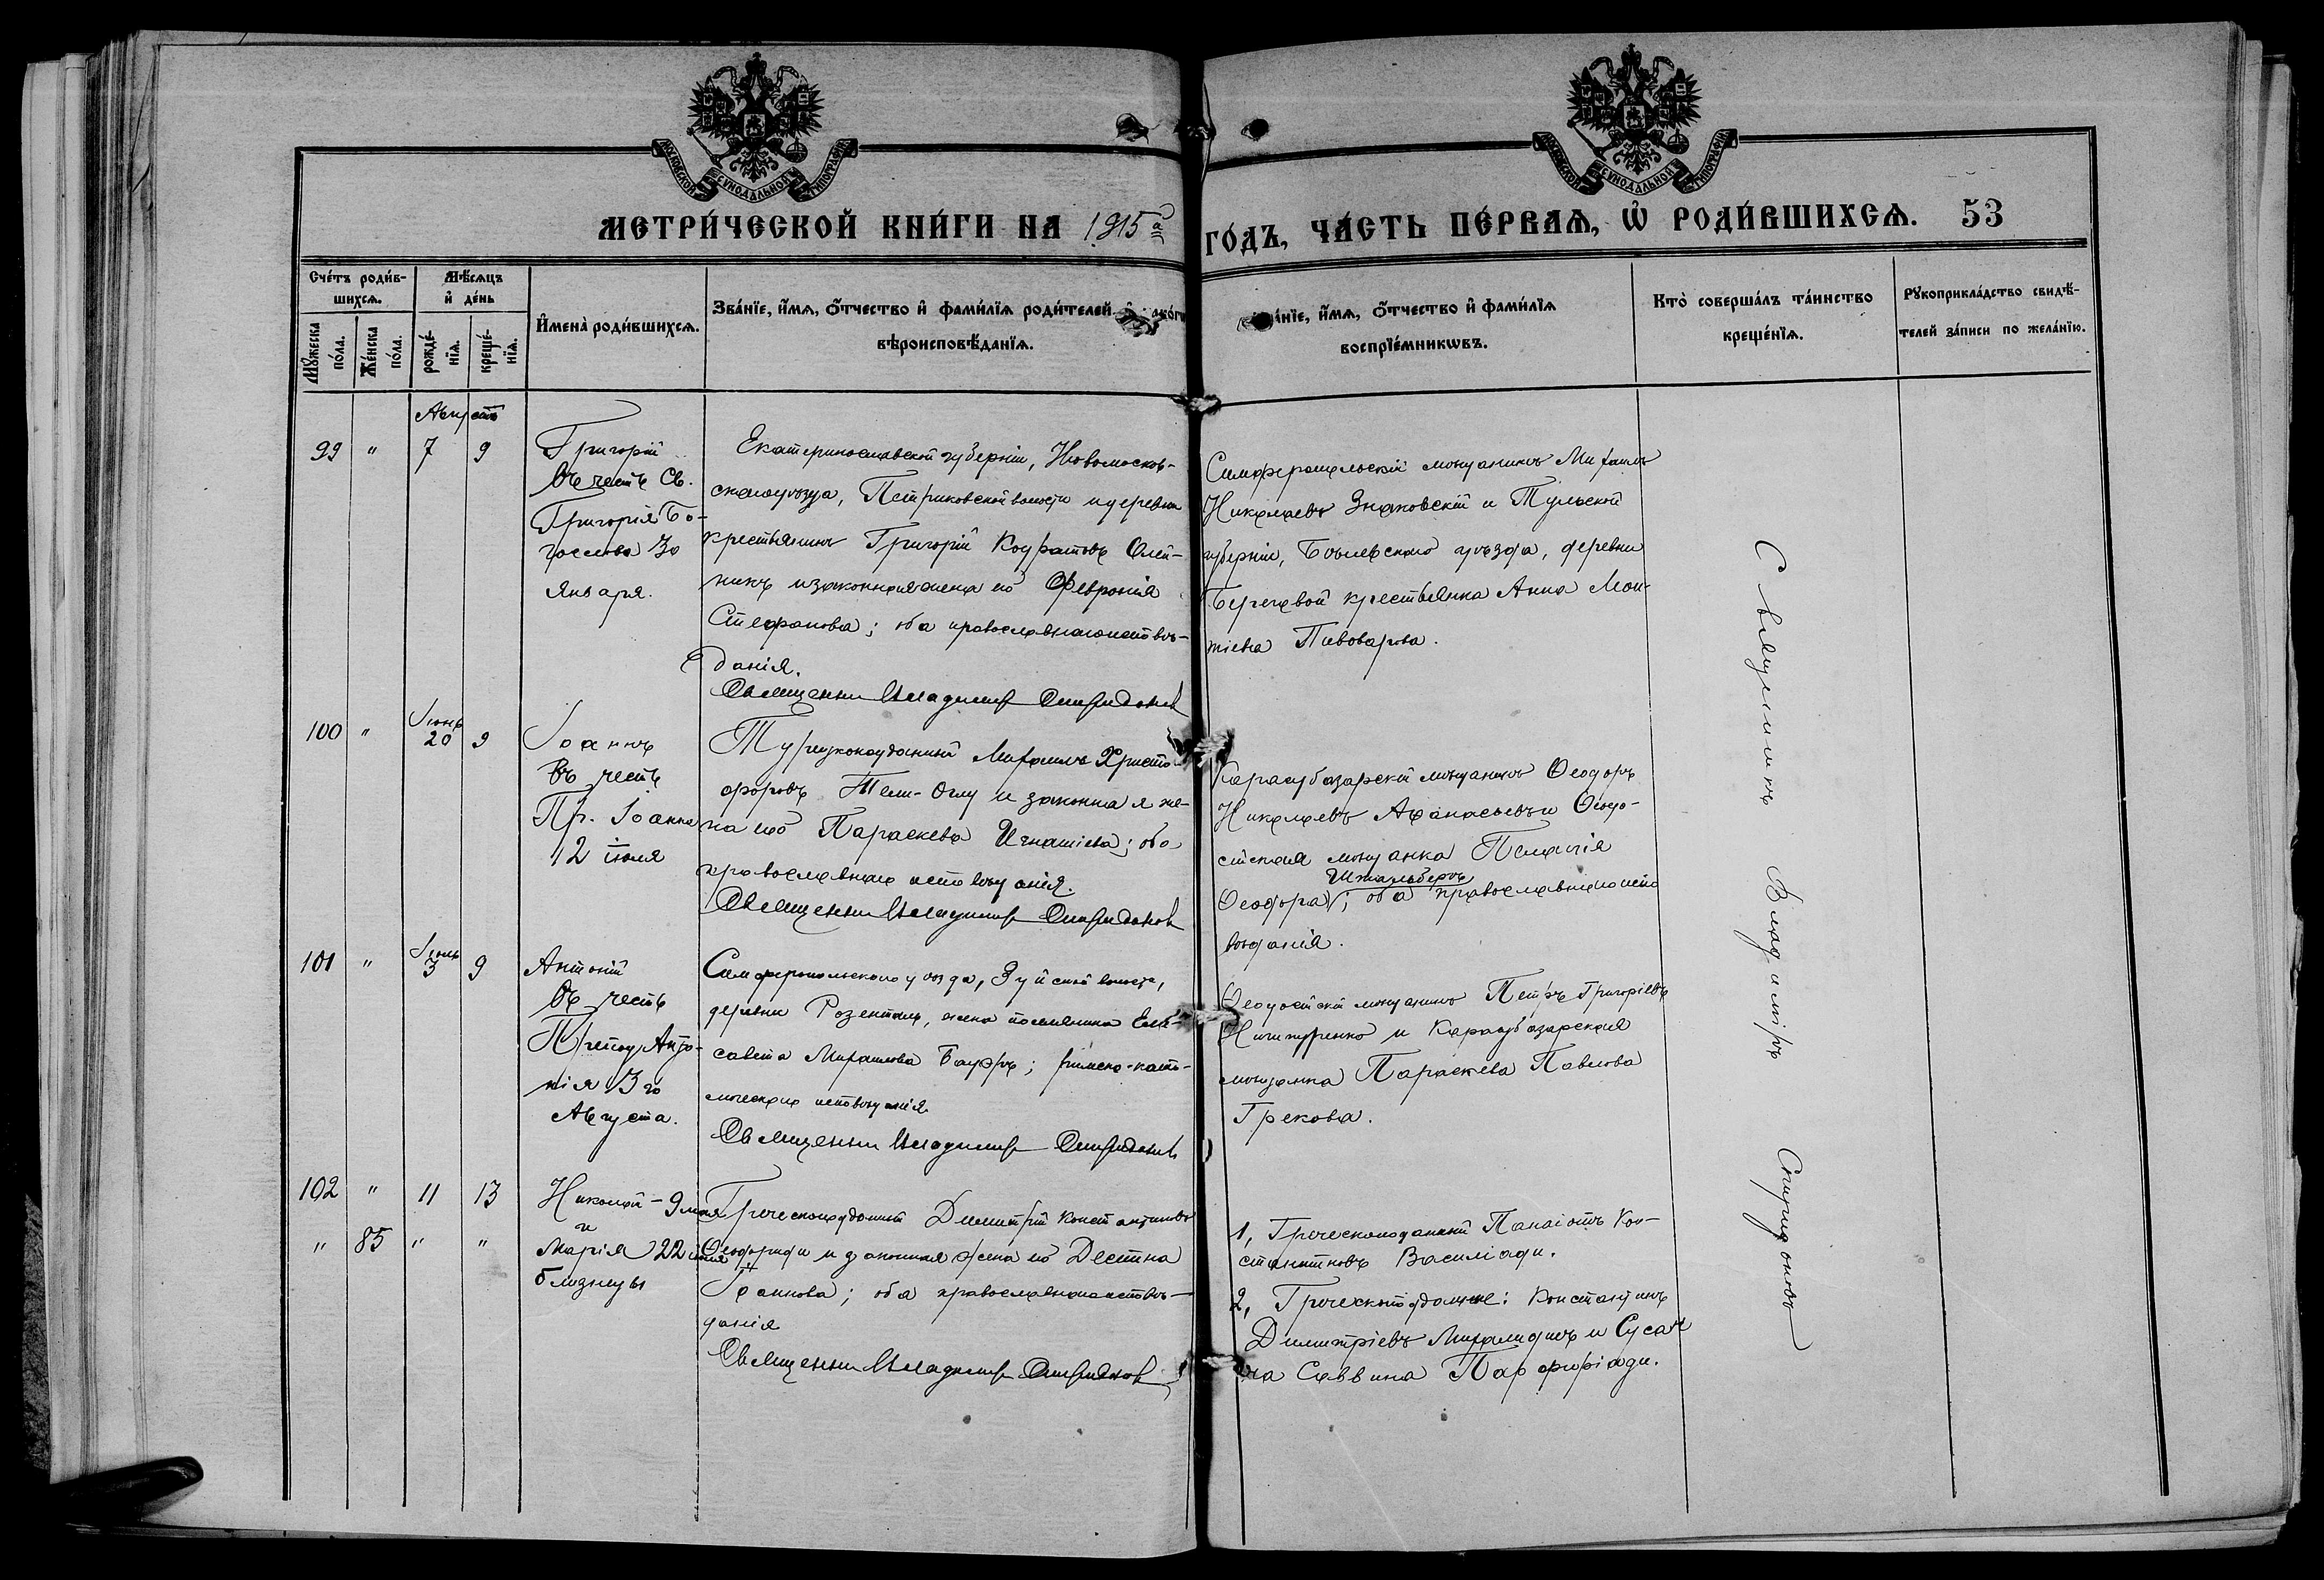 МОСКОВСКОЙ СѴНОДАЛЬНОЙ ТИПОГРАФІИ
МОСКОВСКОЙ СѴНОДАЛЬНОЙ ТИПОГРАФІИ
МЕТРИ́ЧЕСКОЙ КНИ́ГИ НА 1915 ГО́ДЪ, ЧА́СТЬ ПЕ́РВАЯ, Ѡ РОДИ́ВШИХСЯ. 53
Сче́тъ роди́в-
шихся.
Мꙋжеска по́ла.
Же́нска по́ла.
Мѣ́сяцъ
и҆ де́нь
рожде́-
нїя.
креще́-
нїя.
И҆мена̀ роди́вшихся.
Зва́нїе, и҆́мя, ѻ҆́тчество и҆ фами́лїя роди́телей, и҆ како́гѡ
вѣроисповѣ́данїя.
Зва́нїе, и҆́мя, ѻ҆́тчество и҆ фами́лїя
воспрїе́мникѡвъ.
Кто̀ соверша́лъ та́инство
креще́нїя.
Рꙋкоприкла́дство свидѣ́-
телей за́писи по жела́нїю.
Августъ
99 " 7 9
Григорій
въ честь Св.
Григорія Бо-
гослова 30
Января.
Екатеринославской губерніи, Новомосков-
скаго уѣзда, Петриковской волости и деревни
крестьянинъ Григорій Олей-
никъ и законная жена его Февронія
Стефанова; оба православнаго исповѣ-
данія.
Священникъ Владиміръ Спиридоновъ
Симферопольскій мѣщанинъ Михаилъ
Николаевъ Знаковскій и Тульской
губерніи, Бѣлевскаго уѣзда, деревни
Береговой крестьянка Анна Мон-
тіева Пивоварова.
100 " Іюнь 20 9
Іоаннъ
въ честь
Пр. Іоанна
12 іюля
Турецкоподданный Михаилъ Христо-
форовъ Тели-Оглу и законная же-
на его Параскева Игнатіева; оба
православнаго исповѣданія.
Священникъ Владиміръ Спиридоновъ
Карасубазарскій мѣщанинъ Ѳеодоръ
Николаевъ Аѳанасьевъ и Ѳеодо-
сійская мѣщанка Пелагія
Ѳеодора Штальберъ; оба православнаго испо
вѣданія.
101 " Іюль 3 9
Антоній
въ честь
Препод. Анто-
нія 3го
Августа.
Симферопольскаго уѣзда, Зуйской волости,
деревни Розенталь, жена поселянина Ели-
савета Михаилова Бауэръ; римско-като-
лическаго исповѣданія
Священникъ Владиміръ Спиридоновъ
Ѳеодосійскій мѣщанинъ Петръ Григоріевъ
Ничипуренко и Карасубазарская
мѣщанка Параскева Павлова
Грекова.
102 " 11 13
" 85 " "
Николай - 9 мая
и
Марія 22 іюля
близнецы
Греческоподданный Димитрій Константиновъ
Ѳеодориди и законная жена его Деспина
Іоаннова; оба православнаго исповѣ-
данія
Священникъ Владиміръ Спиридоновъ
1, Греческоподданный Панаіотъ Кон-
стантиновъ Василіади.
2, Греческоподданные: Константинъ
Димитріевъ Михалиди и Сусан
на Саввина Парфиріади.
Священникъ Владиміръ Спиридоновъ